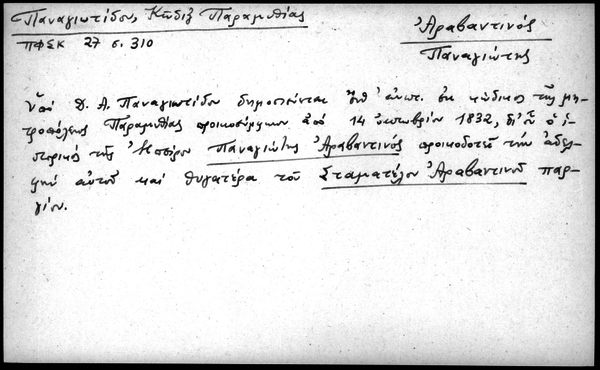 Παναγιωτίδου, Κῶδιξ Παραμυθίας
ΠΦΣΚ 27 σ. 310
Ἀραβαντινός
Παναγιώτης
Ὑπό Δ. Α. Παναγιωτίδου δημοσιεύεται ὑπ' ἀντ. ἐκ κώδικος τῆς μη-
τροπόλεως Παραμυθίας προικοσύμφωνον ἀπό 14 Ὀκτωβρίου 1832, δι' οὗ ὁ ἱ-
στορικός τῆς Ἠπείρου Παναγιώτης Ἀραβαντινός προικοδοτεῖ τήν ἀδελ-
φήν αὐτοῦ καί θυγατέρα τοῦ Σταματέλου Ἀραβαντινοῦ παρ-
γίου.